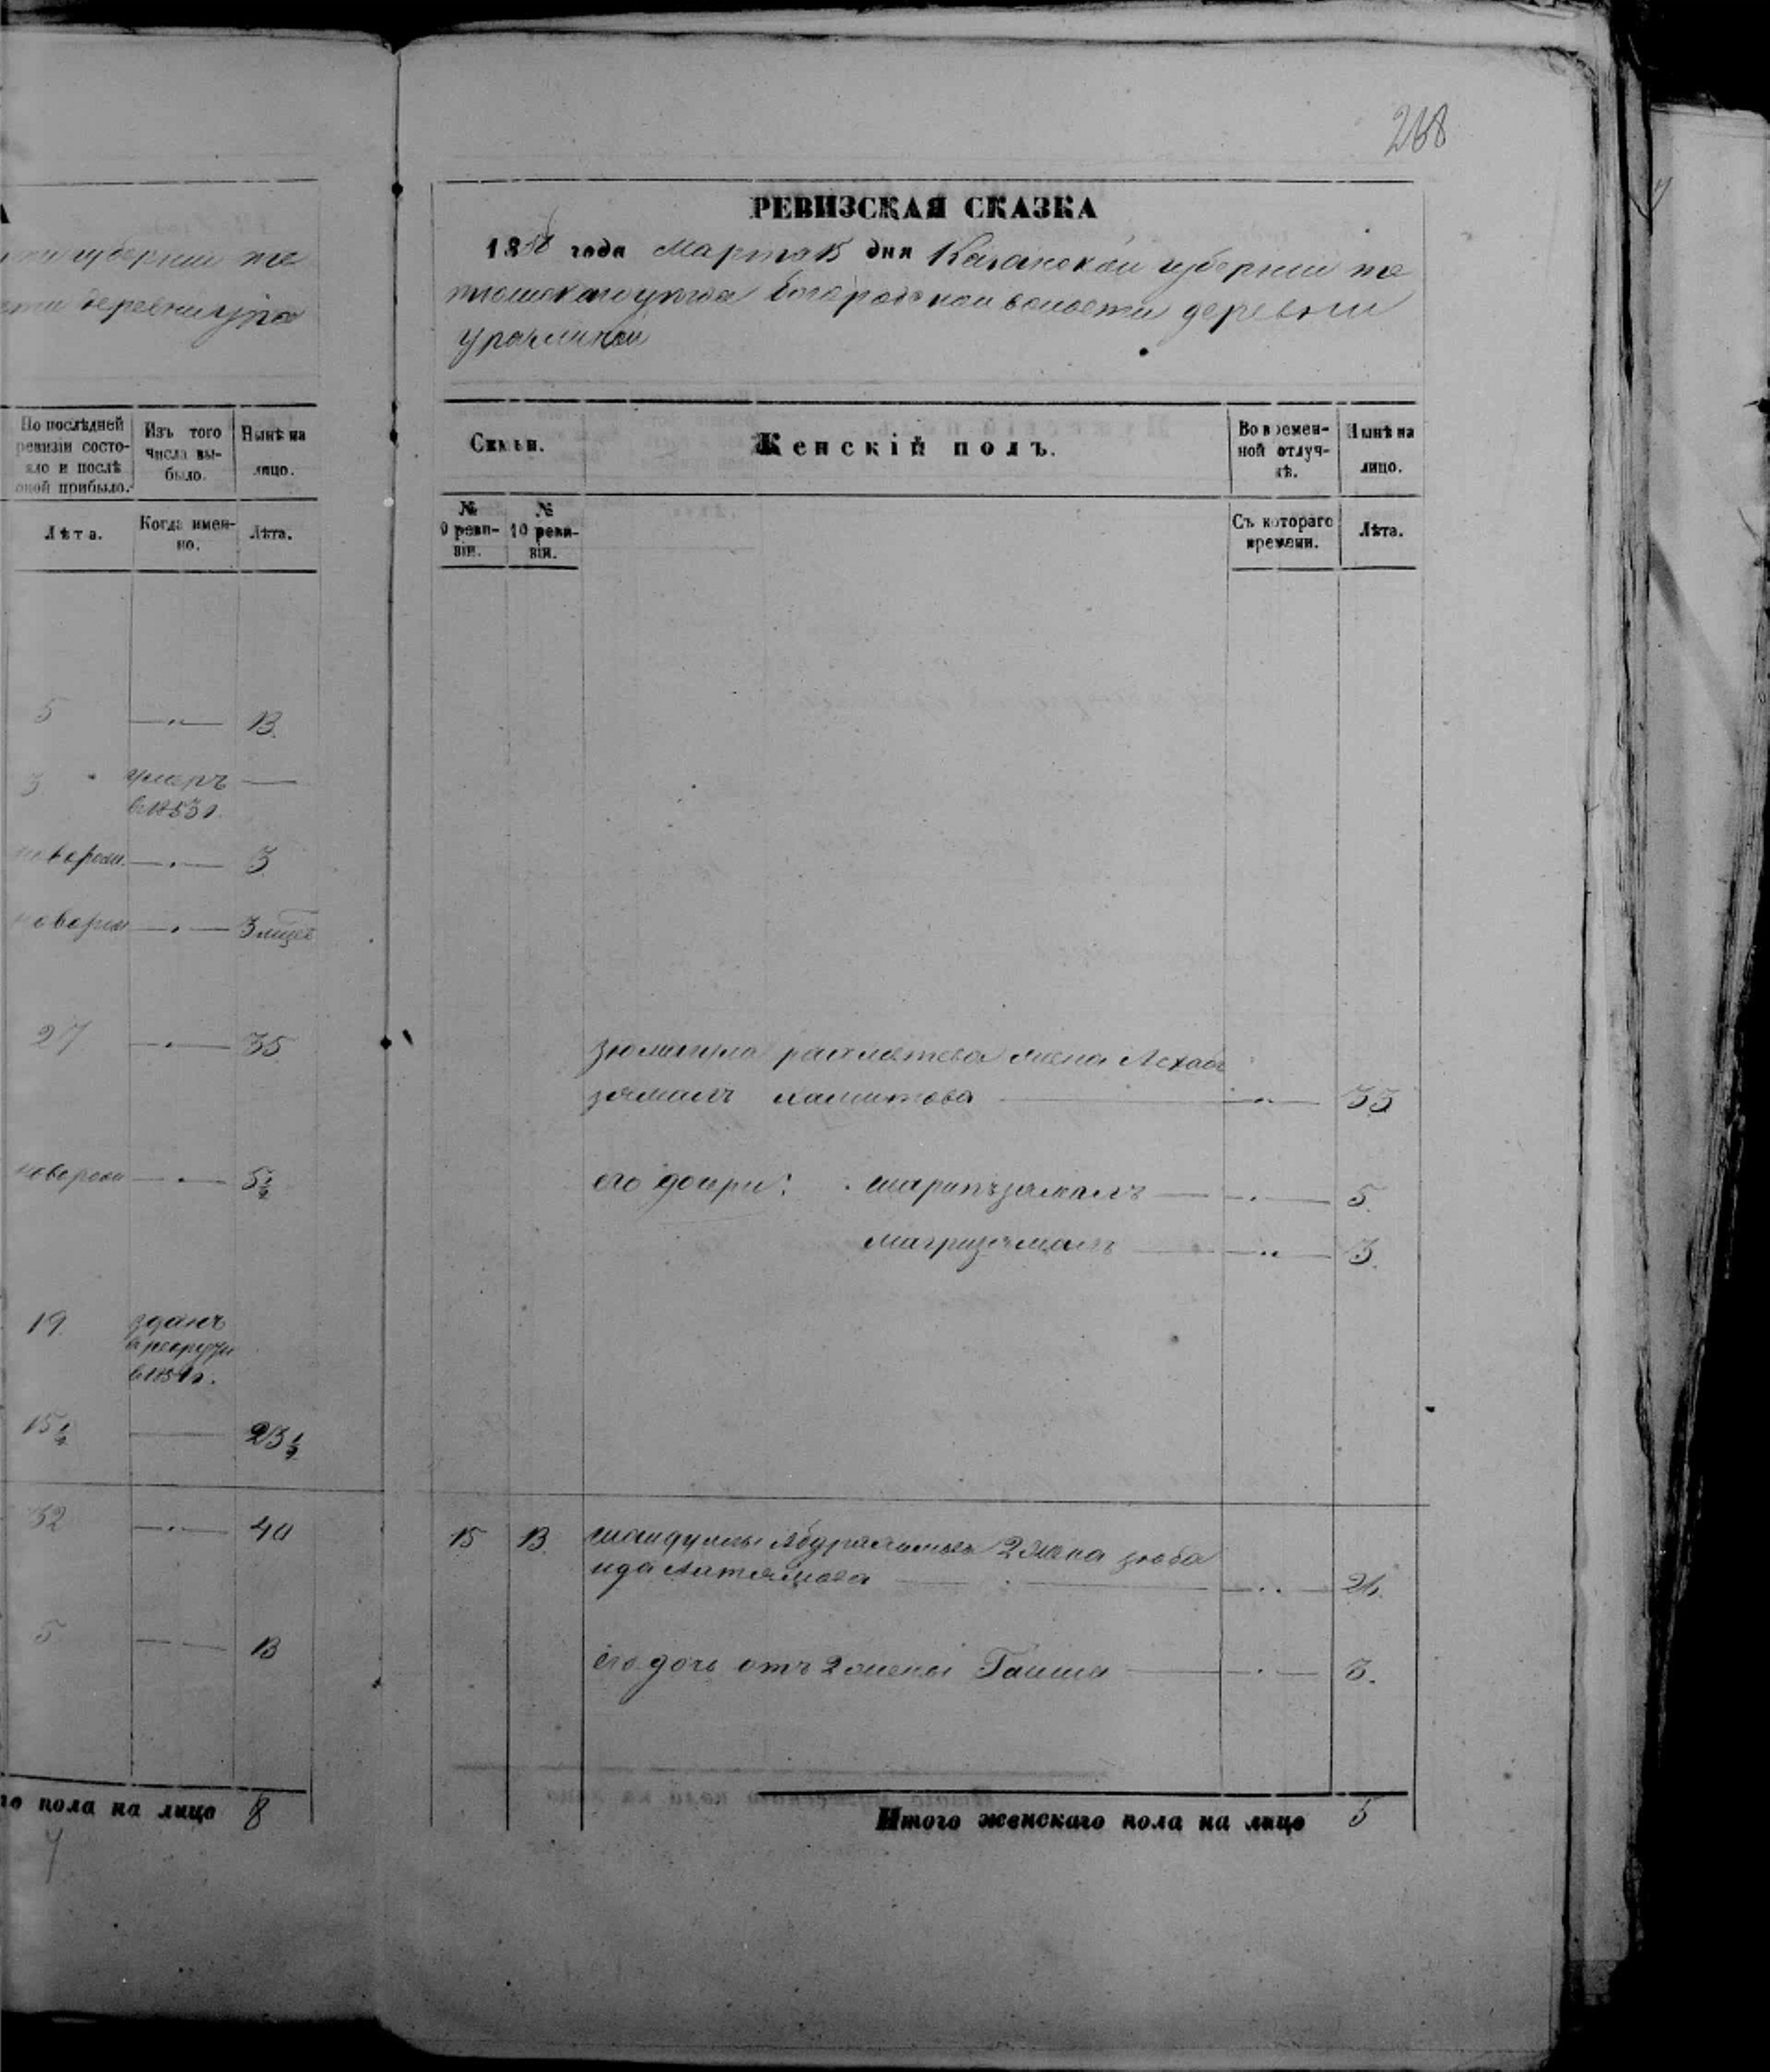 268
губерніи те
деревни ура
По послѣдней ревизіи состояло и послѣ оной прибыло.
Изъ того числа выбыло.
Нынѣ на лицо.
Лѣта.
Когда именно.
Лѣта.
5 —"— 13.
3 умеръ —
в 1853 г.
новорож. —"— 3
новорож —"— 3 мцев
27 —"— 35
новорож —"— 5½
19. зданъ
в рекруты
в 185 г.
15½ — 23½
32 —"— 40
5 — 13
го пола на лицо 8
РЕВИЗСКАЯ СКАЗКА
1858 года Марта 15 дня Казанской губерніи те
тюшскаго уезда Богородской волости деревни
урачлиной
Семьи.
Женскій полъ.
Во временной отлучкѣ.
Нынѣ на лицо.
№ 9 ревизіи.
№ 10 ревизіи.
Съ котораго времени.
Лѣта.
рахметева жена
зямалъ хамитова —"— 35
его дочри: шарипъзямалъ —"— 5.
магризямалъ —"— 3.
15 13 2 жена зюба
ида —"— 26.
его дочь отъ 2 жены Гаиша —"— 3.
Итого женскаго пола на лицо 5